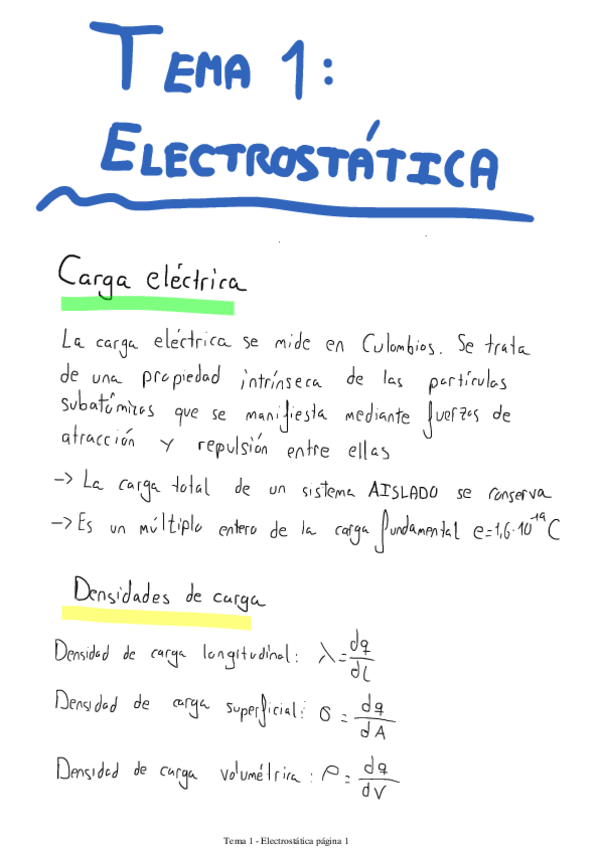 TEMA 1:
ELECTROSTÁTICA
Carga eléctrica
La carga eléctrica se mide en Culombios. Se trata
de una propiedad intrínseca de las partículas
subatómicas que se manifiesta mediante fuerzas de
atracción y repulsión entre ellas
-> La carga total de un sistema AISLADO se conserva
-> Es un múltiplo entero de la carga fundamental e=1,6·10⁻¹⁹ C
Densidades de carga
Densidad de carga longitudinal: λ = dq/dL
Densidad de carga superficial: σ = dq/dA
Densidad de carga volumétrica: ρ = dq/dV
Tema 1 - Electrostática página 1